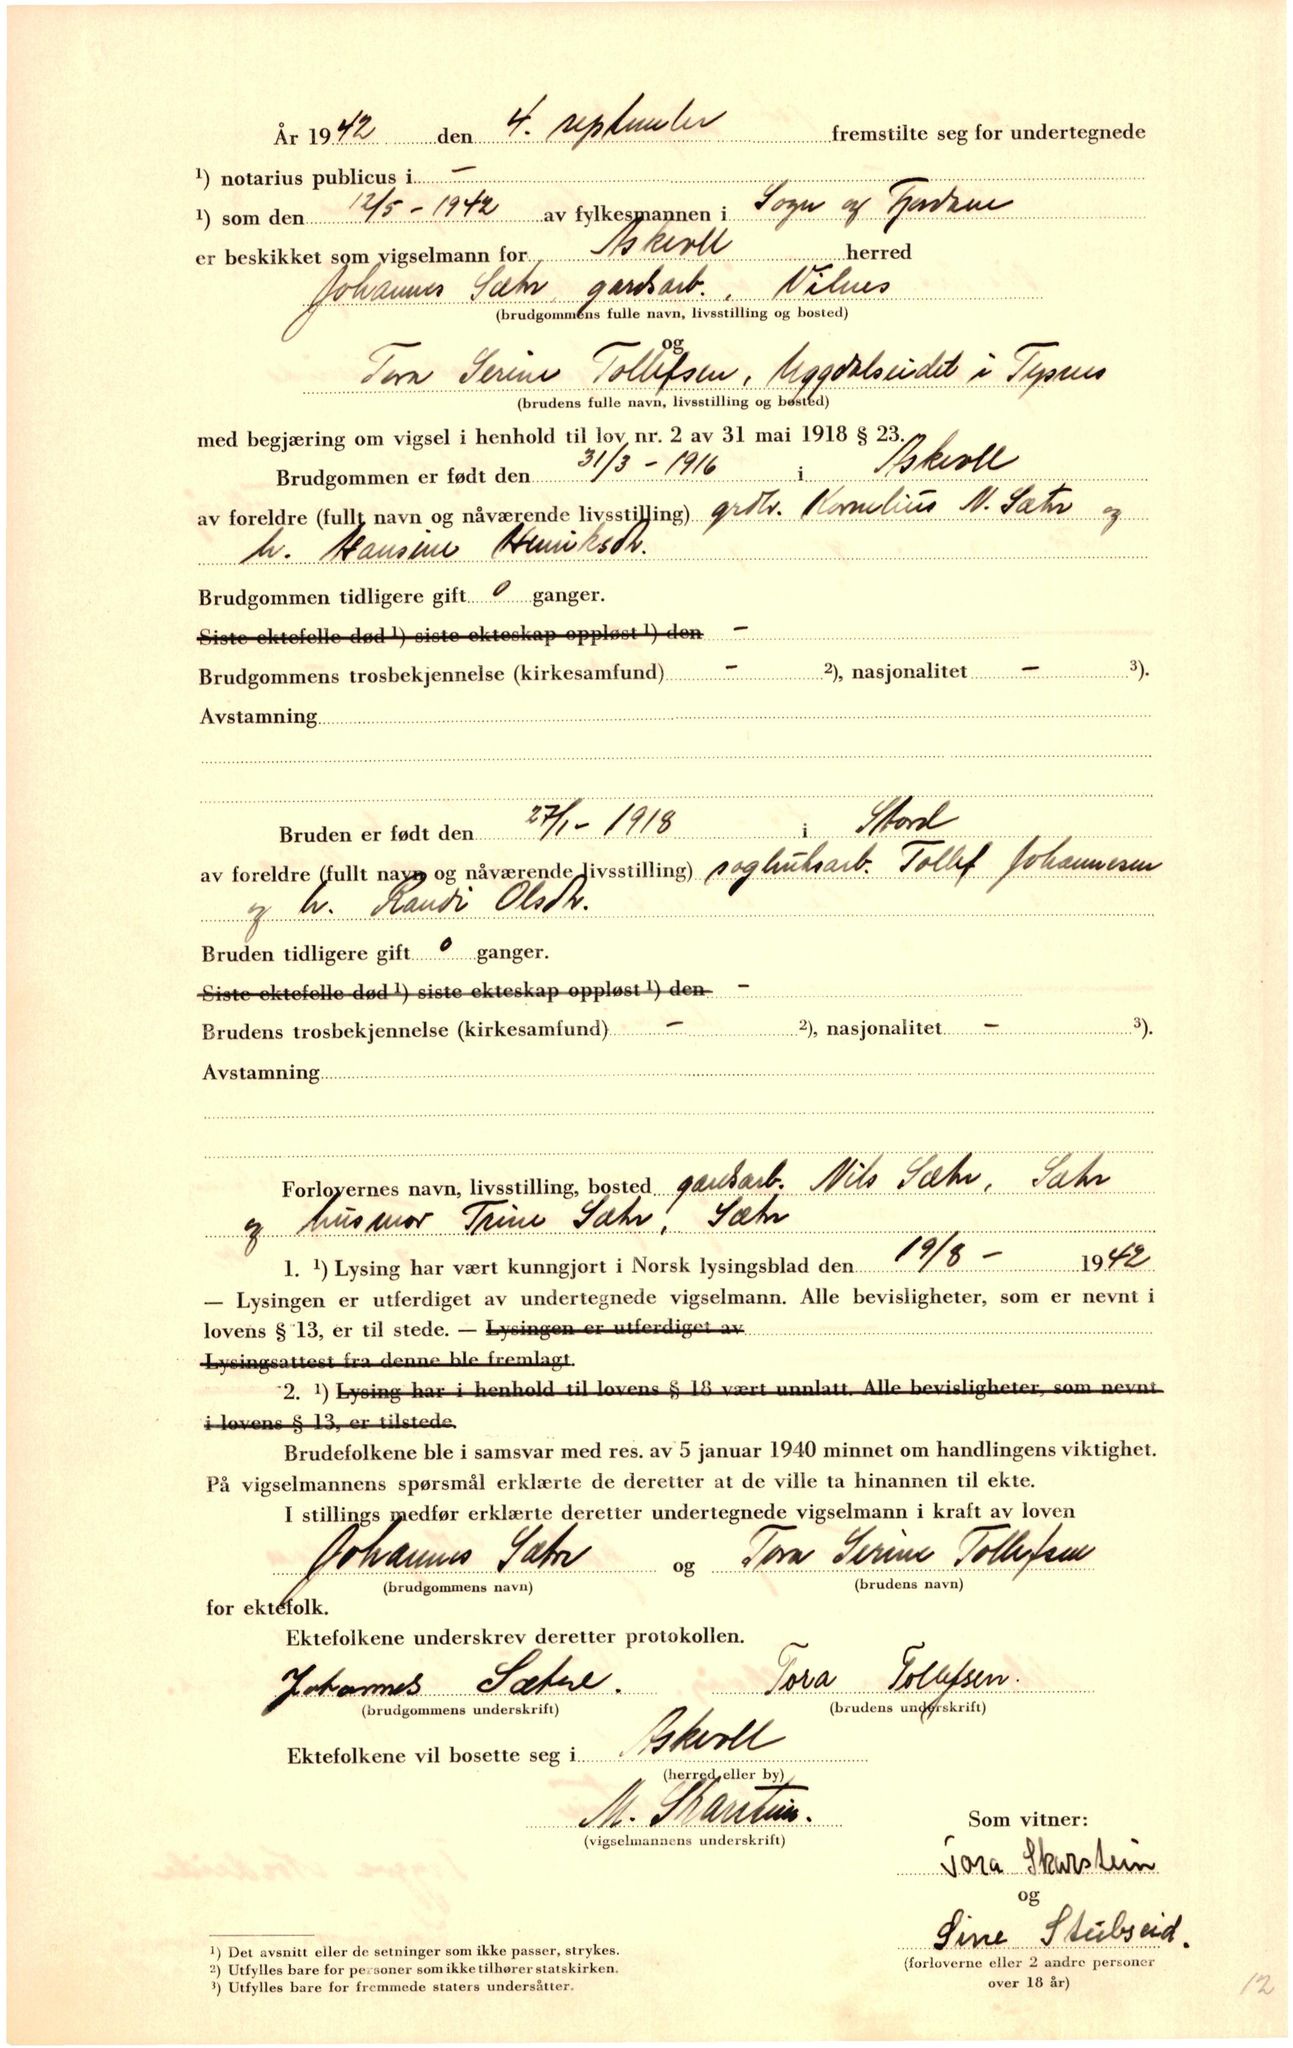 År 1942 den 4. september fremstilte seg for undertegnede
1) notarius publicus i –
1) som den 12/5 – 1942 av fylkesmannen i Sogn og Fjordane
er beskikket som vigselmann for Askvoll herred
Johannes Sætre, gardsarb., Vilnes
(brudgommens fulle navn, livsstilling og bosted)
og
Tora Serine Tollefsen, Uggdalseidet i Tysnes
(brudens fulle navn, livsstilling og bosted)
med begjæring om vigsel i henhold til lov nr. 2 av 31 mai 1918 § 23.
Brudgommen er født den 31/3 – 1916 i Askvoll
av foreldre (fullt navn og nåværende livsstilling) grdbr. Kornelius N. Sætre og
h. Hansine Henriksdtr.
Brudgommen tidligere gift 0 ganger.
Siste ektefelle død 1) siste ekteskap oppløst 1) den –
Brudgommens trosbekjennelse (kirkesamfund) – 2), nasjonalitet – 3).
Avstamning
Bruden er født den 27/1 – 1918 i Stord
av foreldre (fullt navn og nåværende livsstilling) sagbruksarb. Tollef Johannesen
og h. Randi Olsdtr.
Bruden tidligere gift 0 ganger.
Siste ektefelle død 1) siste ekteskap oppløst 1) den –
Brudens trosbekjennelse (kirkesamfund) – 2), nasjonalitet – 3).
Avstamning
Forlovernes navn, livsstilling, bosted gardsarb. Nils Sætre, Sætre
og husmor Trine Sætre, Sætre
1. 1) Lysing har vært kunngjort i Norsk lysingsblad den 19/8 – 1942
— Lysingen er utferdiget av undertegnede vigselmann. Alle bevisligheter, som er nevnt i
lovens § 13, er til stede. — Lysingen er utferdiget av
Lysingsattest fra denne ble fremlagt.
2. 1) Lysing har i henhold til lovens § 18 vært unnlatt. Alle bevisligheter, som nevnt
i lovens § 13, er tilstede.
Brudefolkene ble i samsvar med res. av 5 januar 1940 minnet om handlingens viktighet.
På vigselmannens spørsmål erklærte de deretter at de ville ta hinannen til ekte.
I stillings medfør erklærte deretter undertegnede vigselmann i kraft av loven
Johannes Sætre og Tora Serine Tollefsen
(brudgommens navn) (brudens navn)
for ektefolk.
Ektefolkene underskrev deretter protokollen.
Johannes Sætre. Tora Tollefsen.
(brudgommens underskrift) (brudens underskrift)
Ektefolkene vil bosette seg i Askvoll
(herred eller by)
M. Skarstein.
(vigselmannens underskrift)
Som vitner:
Tora Skarstein
og
Sine Stubseid.
(forloverne eller 2 andre personer
over 18 år)
1) Det avsnitt eller de setninger som ikke passer, strykes.
2) Utfylles bare for personer som ikke tilhører statskirken.
3) Utfylles bare for fremmede staters undersåtter.
12